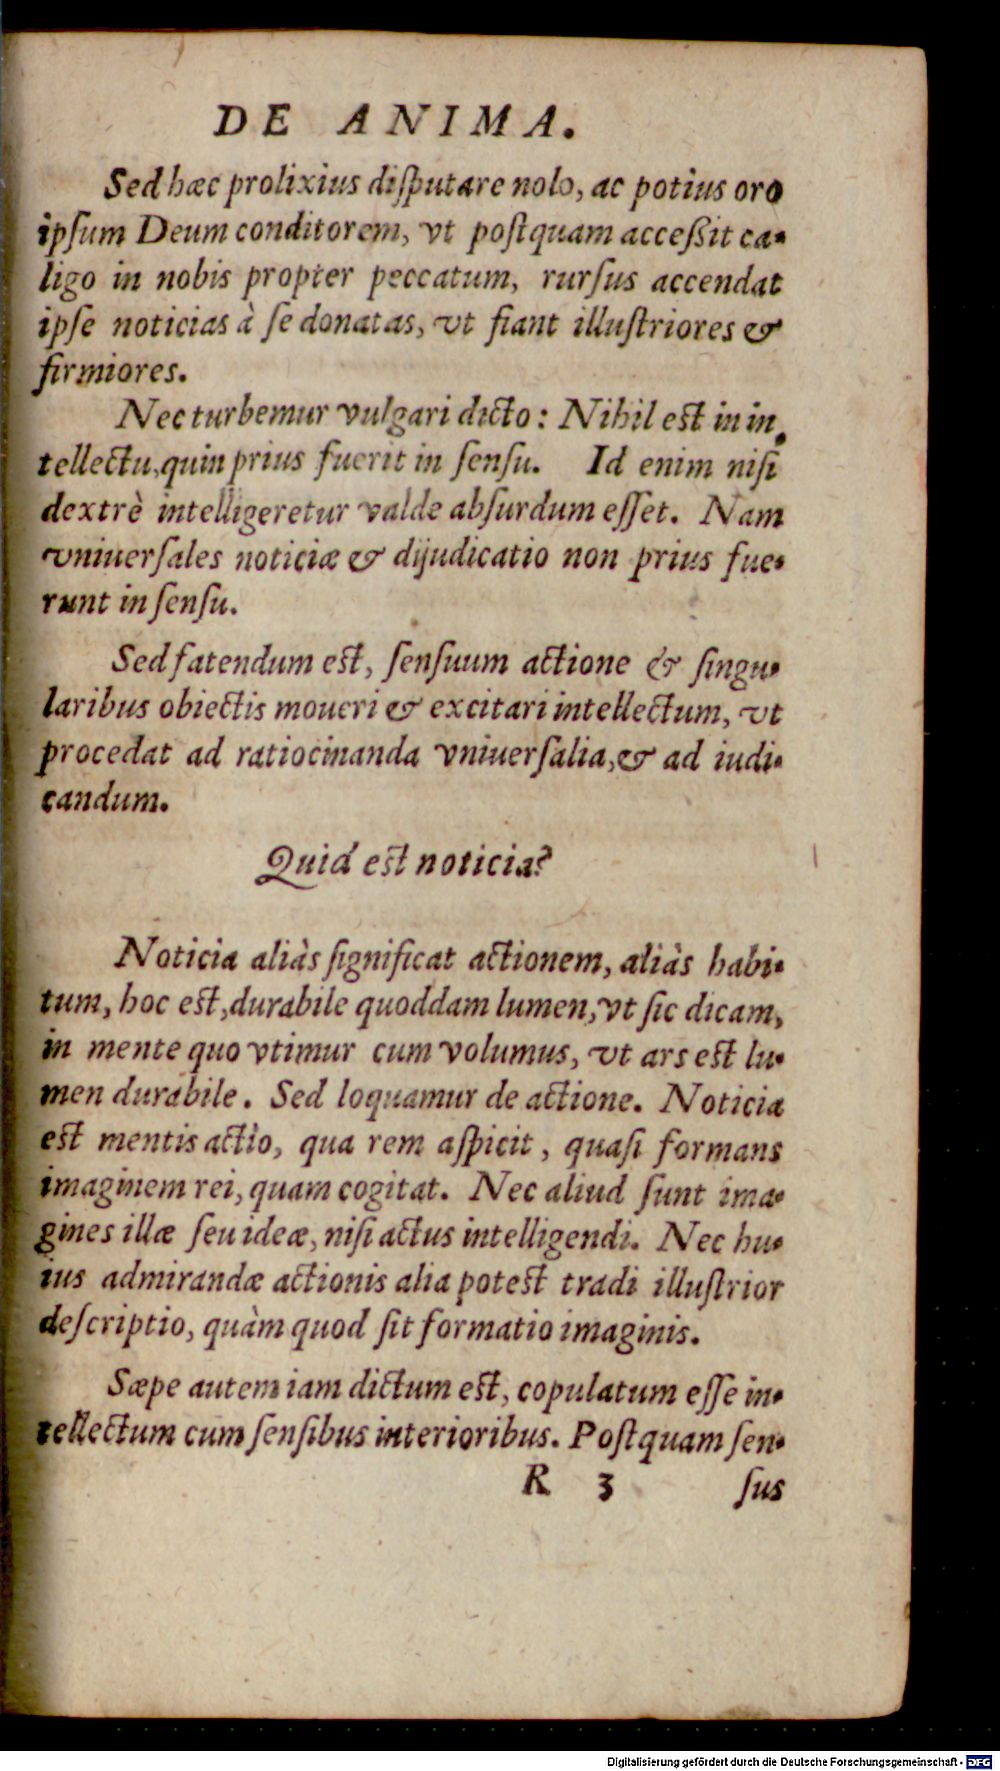 DE ANIMA.
Sed hæc prolixius diſputare nolo, ac potius oro
ipſum Deum conditorem, vt poſtquam acceßit ca-
ligo in nobis propter peccatum, rurſus accendat
ipſe noticias à ſe donatas, vt fiant illuſtriores &
firmiores.
Nec turbemur vulgari dicto: Nihil est in in-
tellectu, quin prius fuerit in ſenſu. Id enim niſi
dextrè intelligeretur valde abſurdum eſſet. Nam
vniuerſales noticiæ & dijudicatio non prius fue-
runt in ſenſu.
Sed fatendum est, ſenſuum actione & ſingu-
laribus obiectis moueri & excitari intellectum, vt
procedat ad ratiocinanda vniuerſalia, & ad iudi-
candum.
Quid est noticia?
Noticia aliàs ſignificat actionem, aliàs habi-
tum, hoc est, durabile quoddam lumen, vt ſic dicam,
in mente quo vtimur cum volumus, vt ars est lu-
men durabile. Sed loquamur de actione. Noticia
est mentis actio, qua rem aſpicit, quaſi formans
imaginem rei, quam cogitat. Nec aliud ſunt ima-
gines illæ ſeu ideæ, niſi actus intelligendi. Nec hu-
ius admirandæ actionis alia potest tradi illuſtrior
deſcriptio, quàm quod ſit formatio imaginis.
Sæpe autem iam dictum est, copulatum eſſe in-
tellectum cum ſenſibus interioribus. Poſtquam ſen-
R 3 ſus
Digitalisierung gefördert durch die Deutsche Forschungsgemeinschaft - DFG